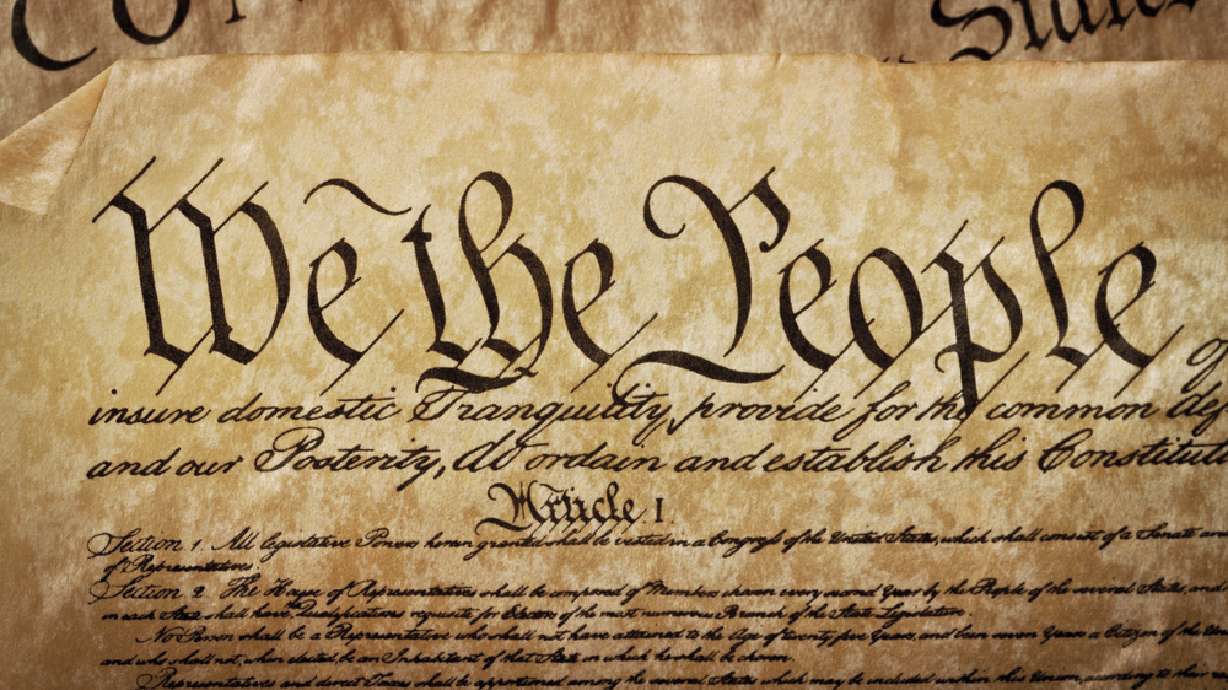 Co States
We the People of
insure domestic Tranquility, provide for the common def
and our Posterity, do ordain and establish this Constitut
Article I
Section 1. All legislative Powers herein granted shall be vested in a Congress of the United States, which shall consist of a Senate an
of Representatives.
Section 2. The House of Representatives shall be composed of Members chosen every second Year by the People of the several States, and
in each State shall have Qualifications requisite for Electors of the most numerous Branch of the State Legislature.
No Person shall be a Representative who shall not have attained to the Age of twenty five Years, and been seven Years a Citizen of the Un
and who shall not, when elected, be an Inhabitant of that State in which he shall be chosen.
Representatives and direct Taxes shall be apportioned among the several States which may be included within this Union, according to their